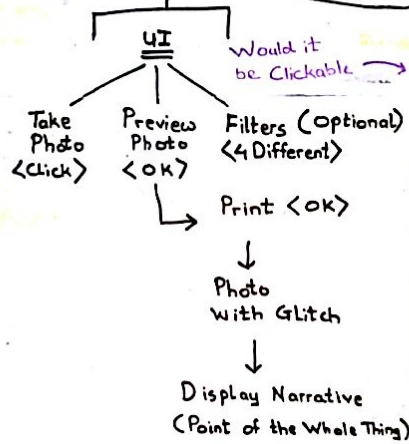 UI
Would it
be Clickable
Take
Photo
<Click>
Preview
Photo
<OK>
Filters (Optional)
<4 Different>
Print <OK>
Photo
with Glitch
Display Narrative
(Point of the Whole Thing)